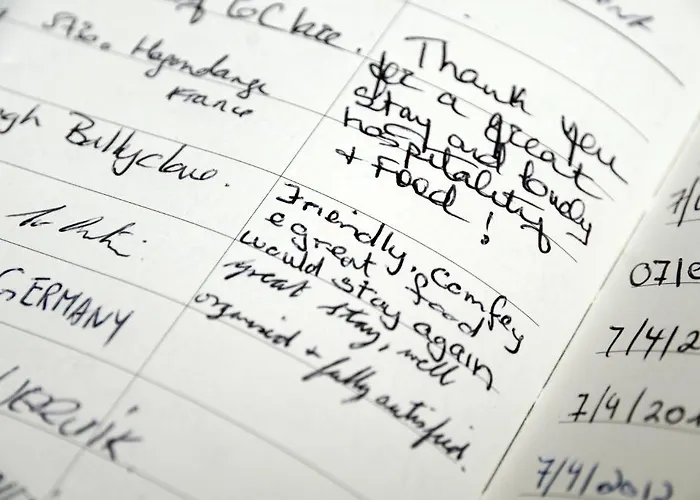 Co Clare.
Hayondange
France
Ballyclare.
GERMANY
Thank you
for a great
stay and lovely
hospitality
+ Food!
Friendly, Comfey
& great food
would stay again
great stay, well
organised + fully satisfied.
7/4
07/0
7/4/2
7/4/20
7/4/2012